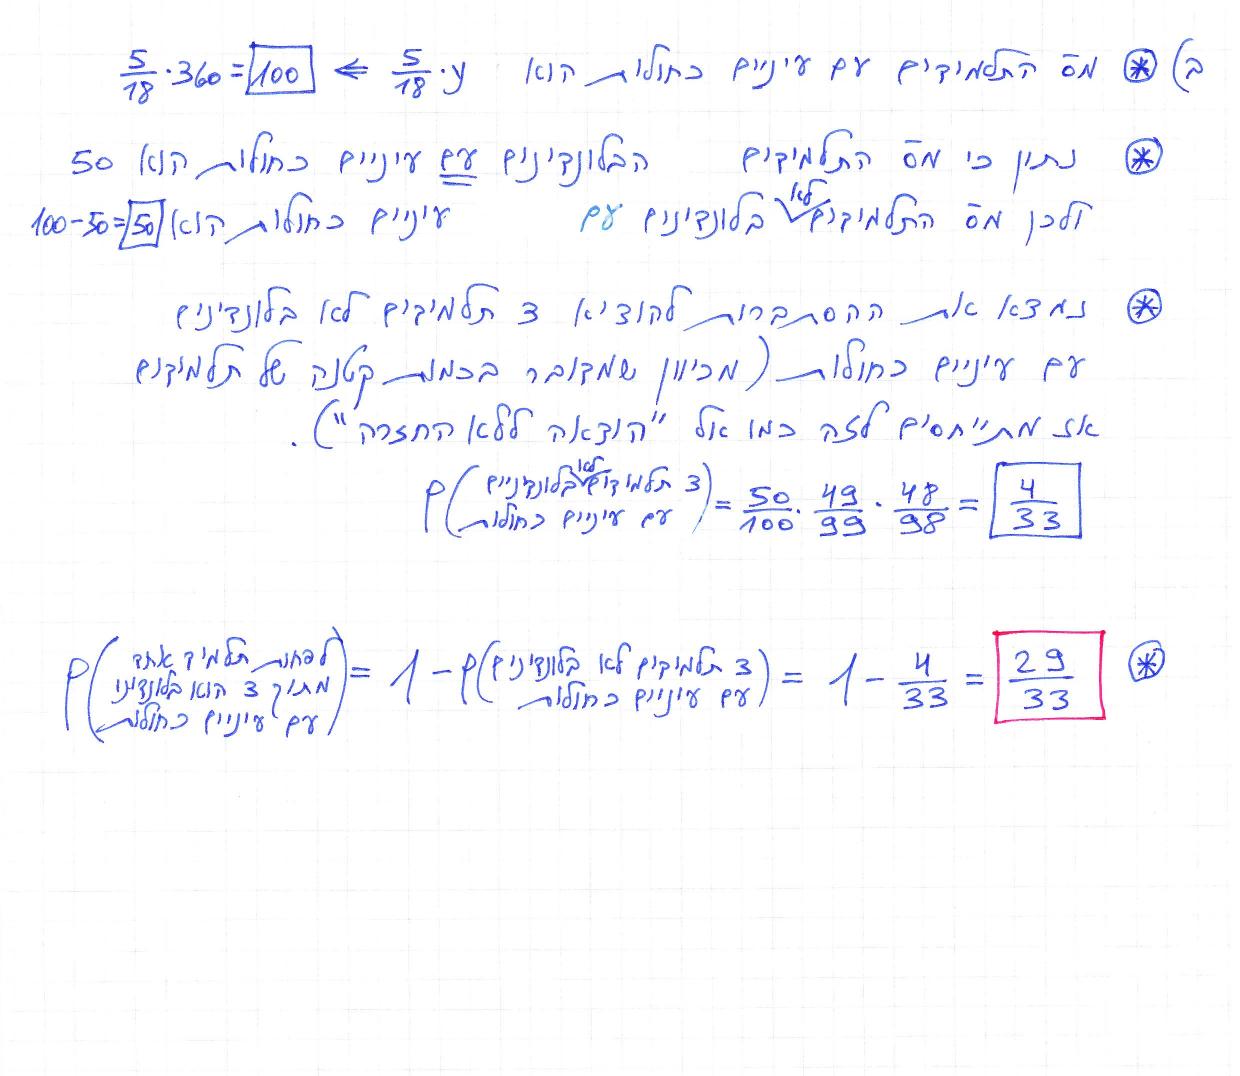 ב) * מס' התלמידים עם עיניים כחולות הוא 5/18 · y ⇐ 5/18 · 360 = 100
* נתון כי מס' התלמידים הבלונדינים עם עיניים כחולות הוא 50
ולכן מס' התלמידים לא בלונדינים עם עיניים כחולות הוא 100-50=50
* נמצא את ההסתברות להוציא 3 תלמידים לא בלונדינים
עם עיניים כחולות (מכיוון שמדובר בכמות קטנה של תלמידים
אז מתייחסים לזה כמו אל "הוצאה ללא החזרה").
P(3 תלמידים לא בלונדיניים עם עיניים כחולות) = 50/100 · 49/99 · 48/98 = 4/33
* P(לפחות תלמיד אחד מתוך 3 הוא בלונדיני עם עיניים כחולות) = 1 - P(3 תלמידים לא בלונדינים עם עיניים כחולות) = 1 - 4/33 = 29/33